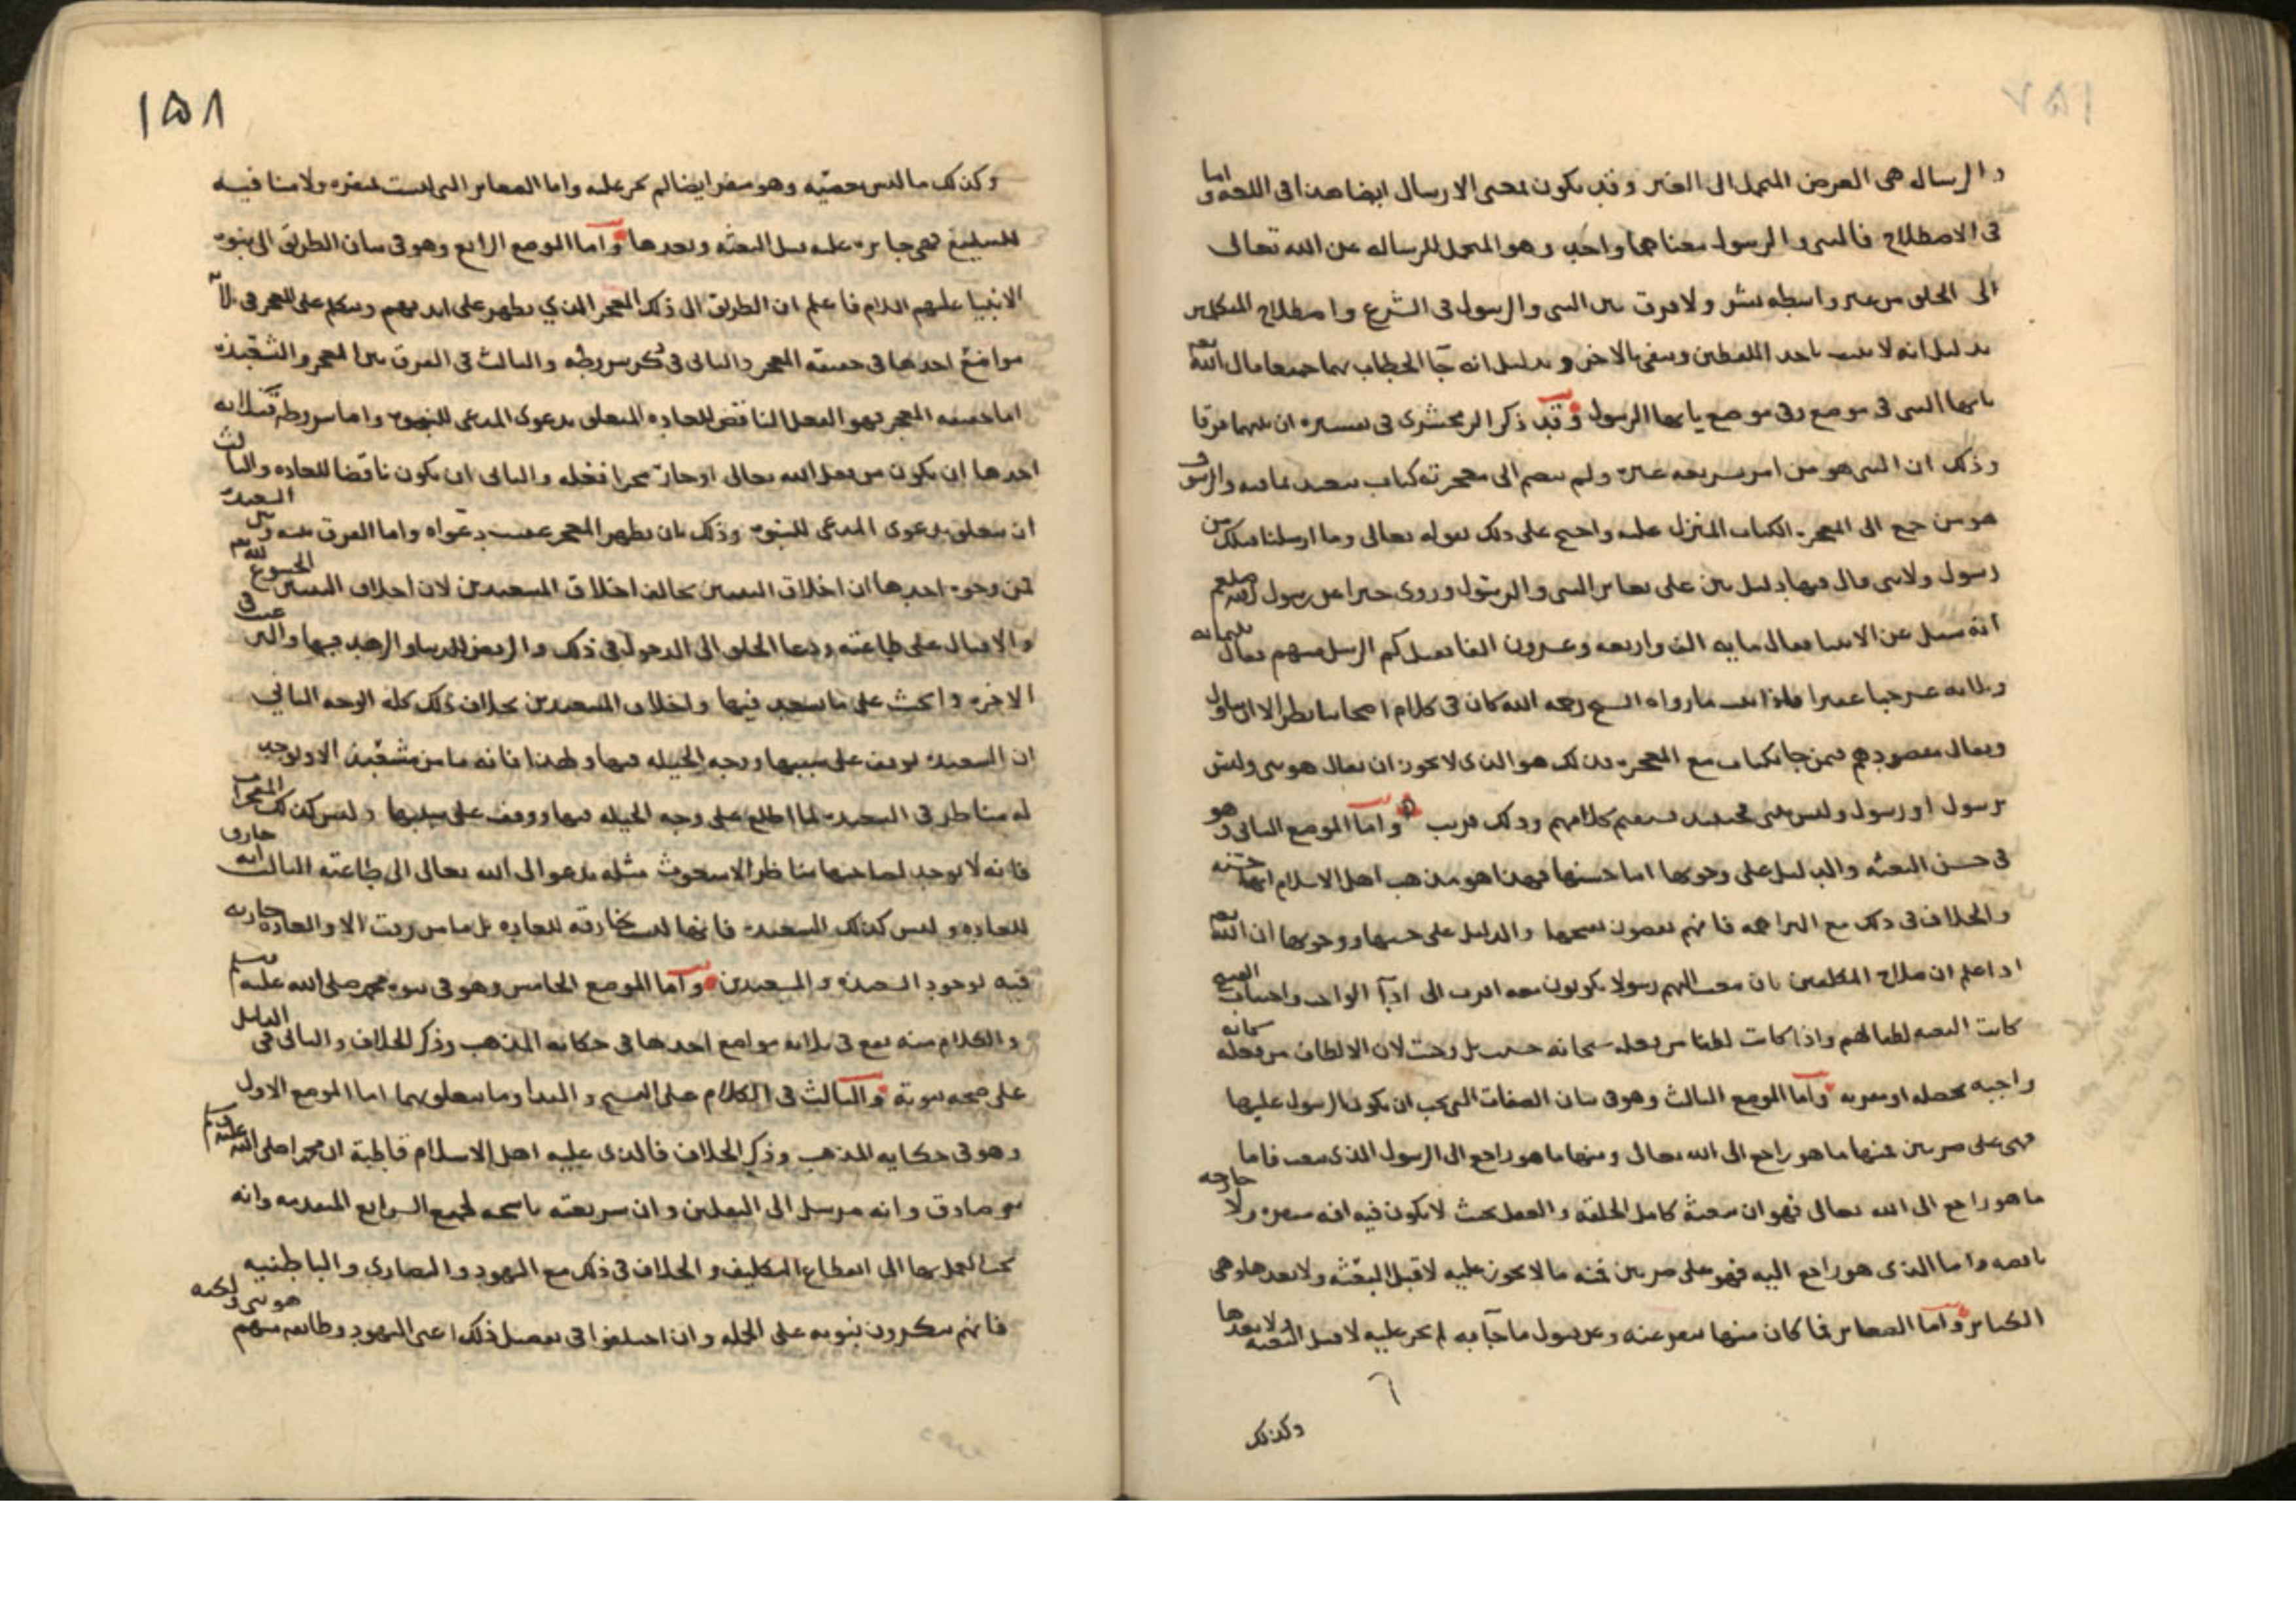 والرسالة هي الغرض المتحمل الى الغير وقد يكون بمعنى الارسال ايضا هذا في اللغه واما
في الاصطلاح فالنبي والرسول معناهما واحد وهو المتحمل للرساله عن الله تعالى
الى الخلق من غير واسطه بشر ولا فرق بين النبي والرسول في الشرع واصطلاح المتكلمين
بدليل انه لا يثبت باحد اللفظين وينفي بالاخر وبدليل انه جآ الخطاب بهما جميعا قال الله تعم
يايها النبي في موضع وفي موضع يايها الرسول وقد ذكر الزمخشري في تفسيره ان بينهما فرقا
وذلك ان النبي هو من امر بشريعه غيره ولم يضم الى معجزته كتاب يتعبد بما فيه والرسول
هو من جمع الى المعجزه الكتاب المنزل عليه واحتج على ذلك بقوله تعالى وما ارسلنا من قبلك من
رسول ولا نبي قال فيها دليل بين على تغاير النبي والرسول وروى خبرا عن رسول الله صلعم
انه سئل عن الانبيا فقال مايه الف واربعه وعشرون الفا فقيل كم الرسل منهم فقال ثلثمائه
وثلاثه عشر جما غفيرا فاذا ثبت ما رواه الشيخ رحمه الله كان في كلام اصحابنا نظر الا ان يتاول
ويقال مقصودهم فيمن جا بكتاب مع المعجزه فذلك هو الذي لا يجوز ان يقال هو نبي وليس
برسول او رسول وليس بنبي فحينئذ يستقيم كلامهم وذلك قريب واما الموضع الثاني وهو
في حسن البعثه والدليل على وجوبها اما حسنها فهذا هو مذهب اهل الاسلام انها حسنه
والخلاف في ذلك مع البراهمه فانهم يقضون بقبحها والدليل على حسنها ووجوبها ان الله تعم
اذا علم ان صلاح المكلفين بان يبعث اليهم رسولا يكونون معه اقرب الى ادآ الواجب واجتناب القبيح
كانت البعثه لطفا لهم واذا كانت لطفا من فعله سبحانه حسنت بل وجبت لان الالطاف من فعله سبحانه
واجبه محصله او مقربه واما الموضع الثالث وهو في بيان الصفات التي يجب ان يكون الرسول عليها
فهي على ضربين فمنها ما هو راجع الى الله تعالى ومنها ما هو راجع الى الرسول الذي يبعث فاما
ما هو راجع الى الله تعالى فهو ان يبعثه كامل الخلقه والعقل بحيث لا يكون فيه افه منفره ولا
واما الذي هو راجع اليه فهو على ضربين فمنه ما لا يجوز عليه لا قبل البعثه ولا بعدها وهي
الكبائر واما الصغائر فما كان منها منفر عنه وعن قبول ما جآ به لم يجز عليه لا قبل البعثه ولا بعدها
وكذلك
١٥٨
وكذلك ما ليس بمعصيه وهو منفر ايضا لم يجز عليه واما الصغائر التي ليست بمنفره ولا منافيه
للتبليغ فهي جايزه عليه قبل البعثه وبعدها واما الموضع الرابع وهو في بيان الطريق الى نبوه
الانبيا عليهم السلام فاعلم ان الطريق الى ذلك المعجز الذي يظهر على ايديهم ونتكلم على المعجز في ثلاثه
مواضع احدها في حقيقه المعجز والثاني في ذكر شروطه والثالث في الفرق بين المعجز والشعبذه
اما حقيقه المعجز فهو الفعل الناقض للعاده المتعلق بدعوى المدعي للنبوه واما شروطه فثلاثه
احدها ان يكون من فعل الله تعالى او جار مجرا فعله والثاني ان يكون ناقضا للعاده والثالث
ان يتعلق بدعوى المدعي للنبوه وذلك بان يظهر المعجز عقيب دعواه واما الفرق بينه وبين الشعبذه
فمن وجوه احدها ان اخلاق النبيين تخالف اخلاق المشعبذين لان اخلاق النبيين الخشوع لله تعم
والاقبال على طاعته ودعا الخلق الى الدخول في ذلك والرفض للدنيا والزهد فيها والترغيب في
الاخره والحث على ما يستعد فيها واخلاق المشعبذين بخلاف ذلك كله الوجه الثاني
ان الشعبذه يوقف على سببها ووجه الحيله فيها ولهذا فانه ما من مشعبذ الا ويوجد
له مناظر في الشعبذه لما اطلع على وجه الحيله فيها ووقف على سببها وليس كذلك المعجز
فانه لا يوجد لصاحبها مناظر الا مبعوث مثله يدعو الى الله تعالى الى طاعته الثالث انه خارق
للعاده وليس كذلك الشعبذه فانها ليست بخارقه للعاده بل ما من وقت الا والعاده جاريه
فيه بوجود الشعبذه والمشعبذين واما الموضع الخامس وهو في نبوه محمد صلى الله عليه وسلم
والكلام منه يقع في ثلاثه مواضع احدها في حكايه المذهب وذكر الخلاف والثاني في الدليل
على صحه نبوته والثالث في الكلام على النسخ والبدا وما يتعلق بهما اما الموضع الاول
وهو في حكايه المذهب وذكر الخلاف فالذي عليه اهل الاسلام قاطبة ان محمدا صلى الله عليه وسلم
نبي صادق وانه مرسل الى الثقلين وان شريعته ناسخه لجميع الشرايع المتقدمه وانه
يجب العمل بها الى انقطاع التكليف والخلاف في ذلك مع اليهود والنصارى والباطنيه
فانهم ينكرون نبوته على الجمله وان اختلفوا في تفصيل ذلك اعني اليهود وطايفه منهم